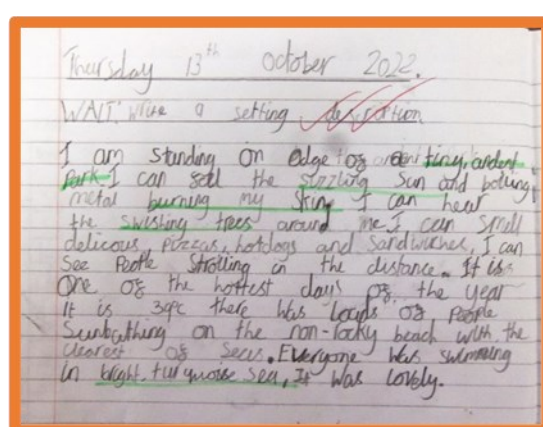 Thursday 13th October 2022.
WALT: write a setting description
I am standing on edge of a tiny, ardent
park. I can see the sizzling sun and boiling
metal burning my skin. I can hear
the swishing trees around me. I can smell
delicous, pizzas, hotdogs and sandwiches, I can
see people strolling in the distance. It is
One of the hottest days of the year
It is 39°c there was loads of people
Sunbathing on the non-rocky beach with the
clearest of seas. Everyone was swimming
in bright turquoise sea, It was lovely.